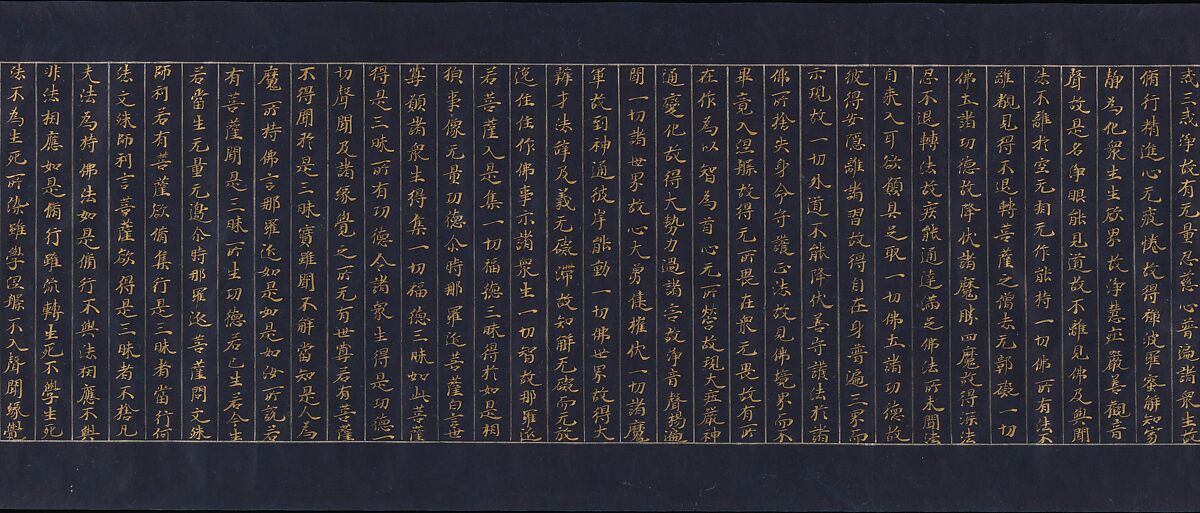 三戒淨故有无量忍慈心普遍諸衆生故
脩行精進心无疲惓故得禪波羅蜜解知寂
靜為化衆生生欲界故淨慧莊嚴善觀音
聲故是名淨眼能見道故不離見佛及與聞
法不離於空无相无作能持一切佛所有法不
離觀見得不退轉菩薩之僧亦无鄣礙一切
佛土諸功德故降伏諸魔勝四魔故得深法
忍不退轉法故疾能通達滿足佛法所未聞法
自來入耳欲願具足取一切佛土諸功德故
彼得安隱離諸習故得自在身普遍三界而
示現故一切外道不能降伏善守護法於諸
佛所捨失身命守護正法故見佛境界而不
畢竟入涅槃故得无所畏在衆无畏故有所
在作為以智為首心无所營故現大莊嚴神
通變化故得大勢力過諸害故淨音聲揚遍
聞一切諸世界故心大勇健摧伏一切諸魔
軍故到神通彼岸能動一切佛世界故得大
辯才法辭及義无礙滯故知解无礙而无放
逸住住作佛事示諸衆生一切智故那羅延
若菩薩入是集一切福德三昧得於如是相
事像无量功德尒時那羅延菩薩白言世
尊願諸衆生得集一切福德三昧如此菩薩
得是三昧所有功德令諸衆生得是功德一
切聲聞及諸緣覺之所无有世尊若有菩薩
不得聞於是三昧寶雖聞不解當知是人為
魔所持佛言那羅延如是如是如汝所說若
有菩薩聞是三昧所生功德若已生若今生
若當生无量无邊尒時那羅延菩薩問文殊
師利若有菩薩欲脩集行是三昧者當行何
法文殊師利言菩薩欲得是三昧者不捨凡
夫法為持佛法如是脩行不與法相應不與
非法相應如是脩行雖流轉生死不學生死
法不為生死所染雖學涅槃不入聲聞緣覺